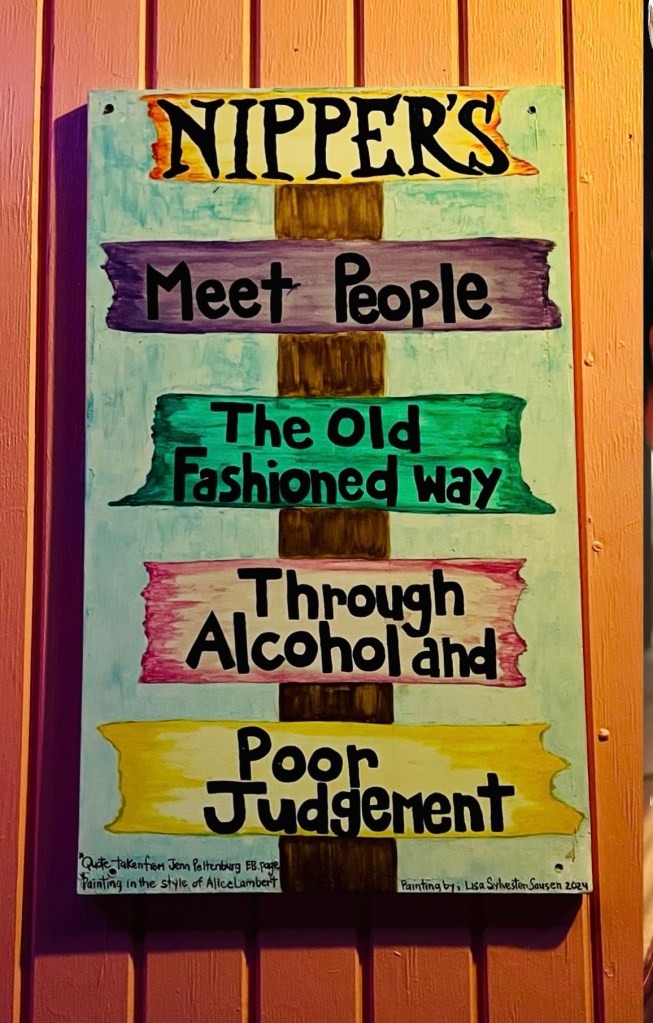 NIPPER'S
Meet People
The Old
Fashioned way
Through
Alcohol and
Poor
Judgement
"Quote taken from Jenn Peltenburg F.B. page
Painting in the style of Alice Lambert
Painting by, Lisa Sylvester Sausen 2024